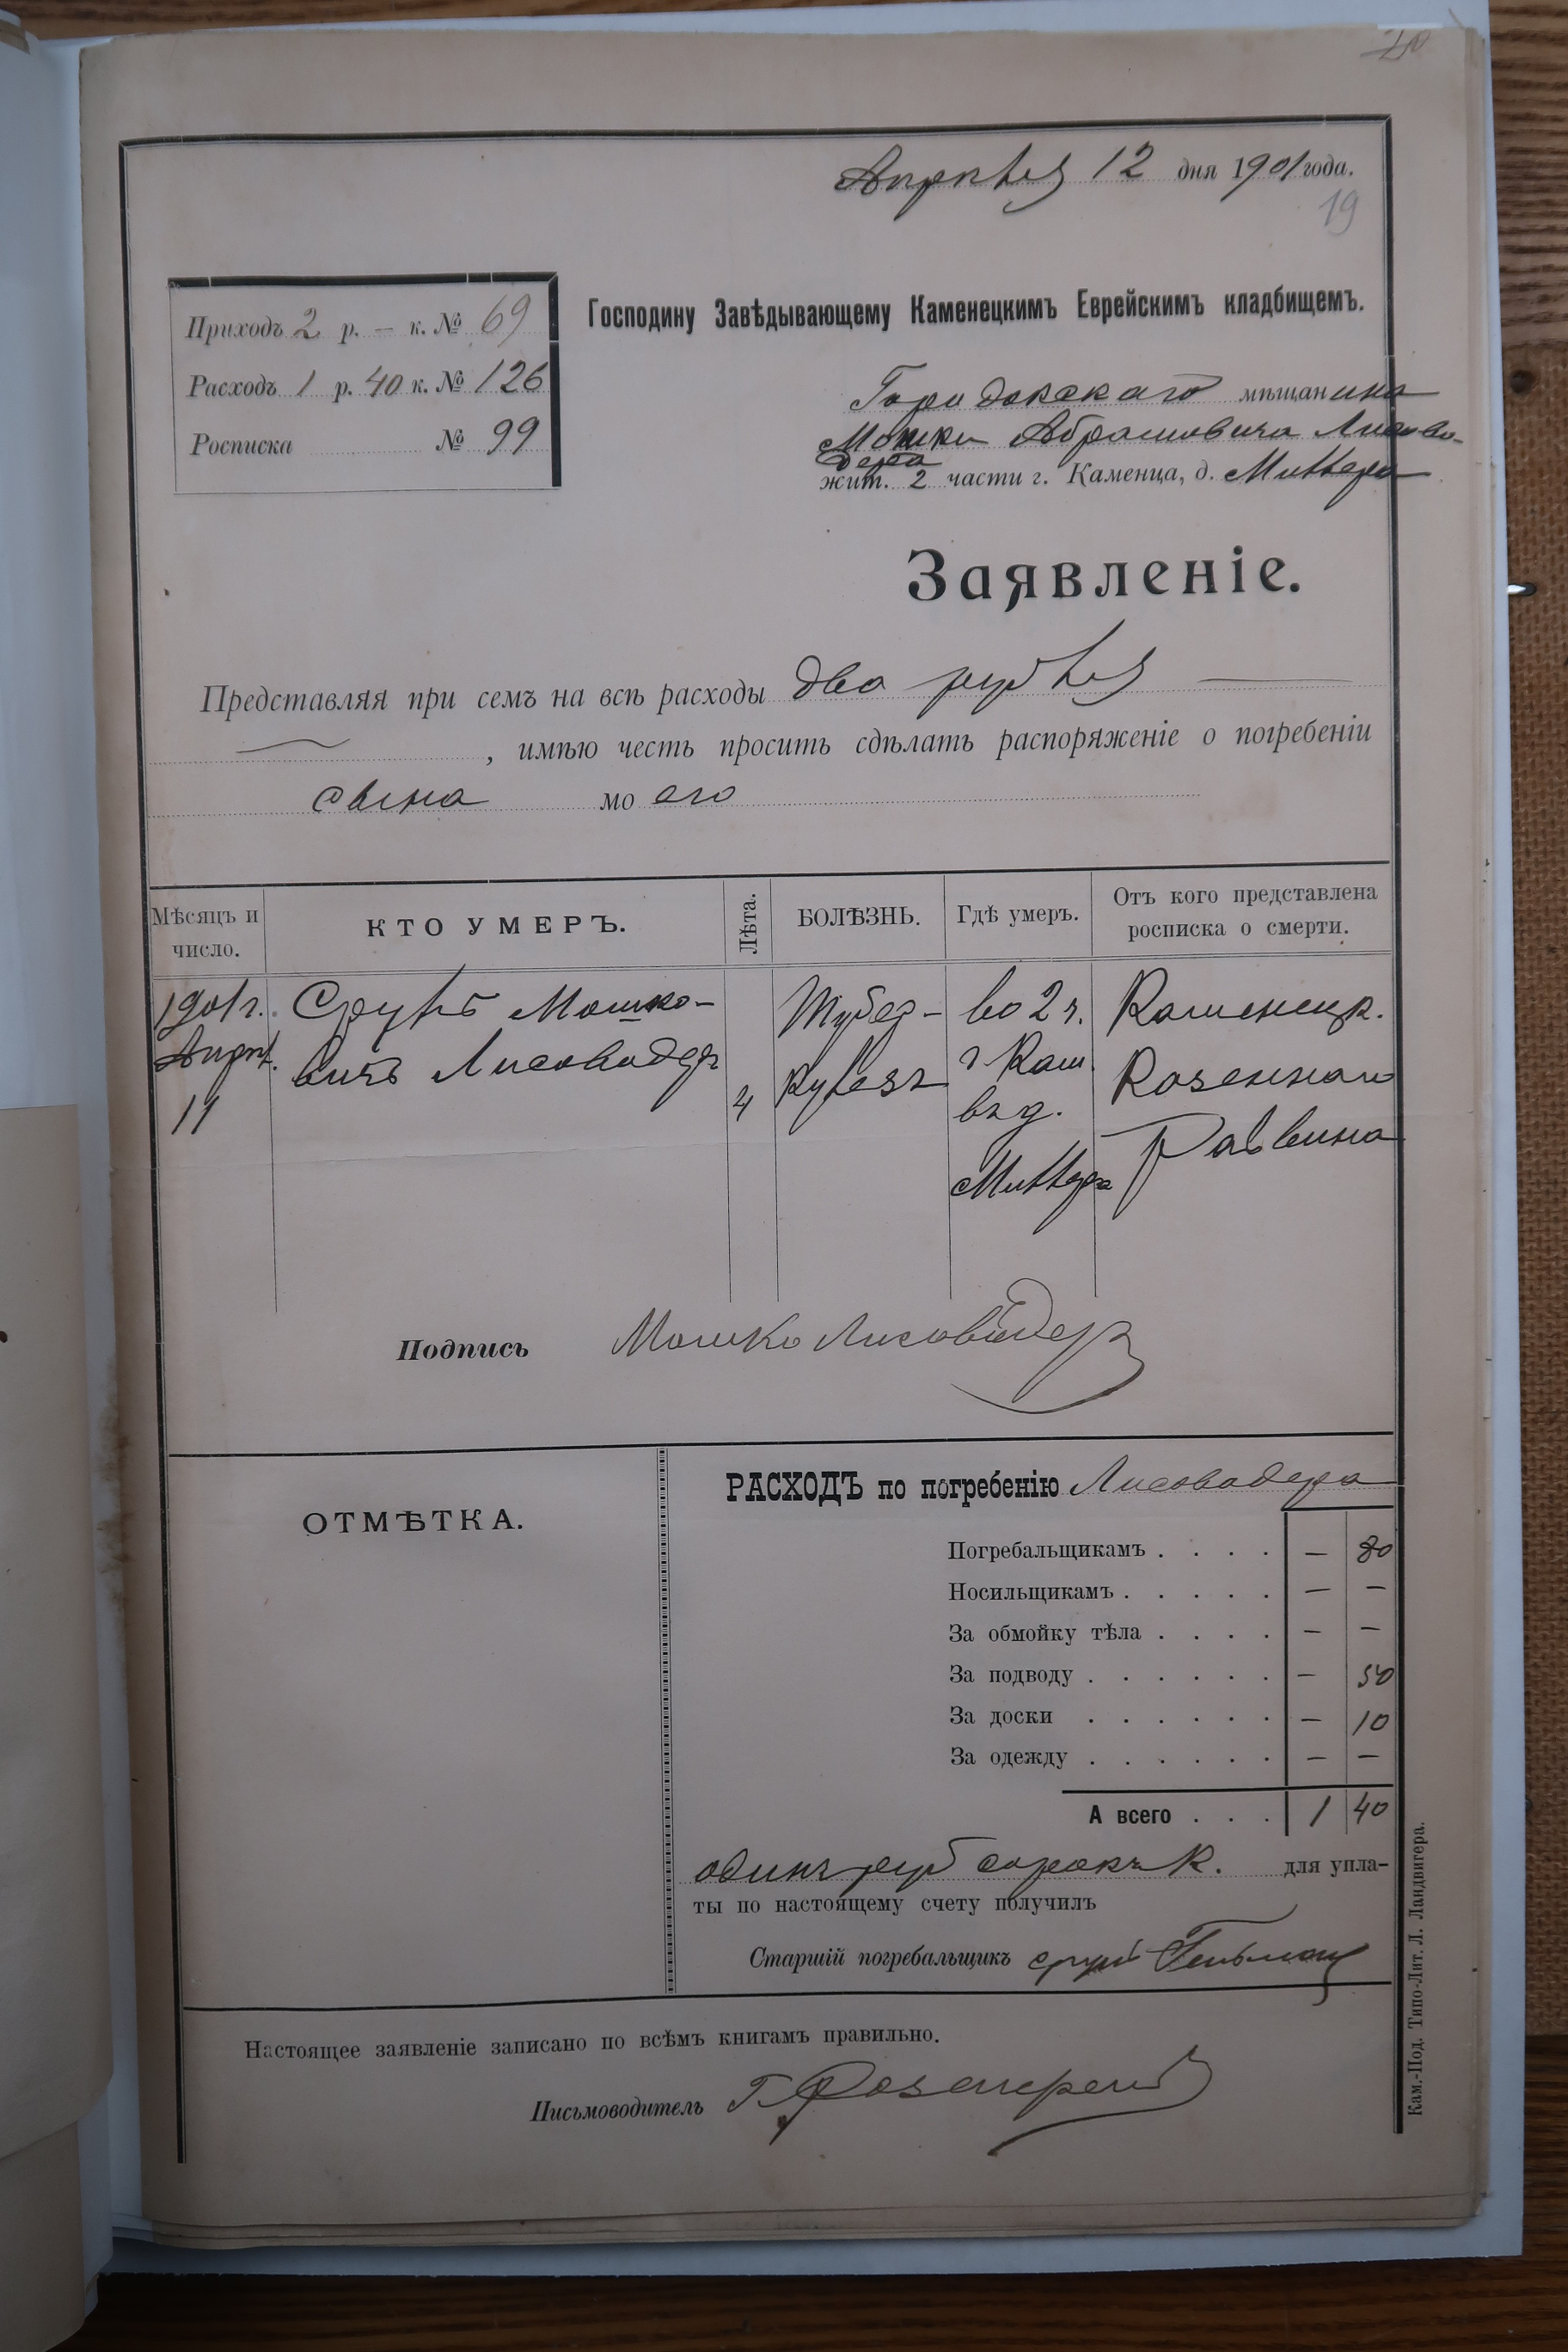 20
Апрѣля 12 дня 1901 года.
19
Приходъ 2 р. — к. № 69
Расходъ 1 р. 40 к. № 126
Росписка № 99
Господину Завѣдывающему Каменецкимъ Еврейскимъ кладбищемъ.
Городокскаго мѣщанина
Мошки Абрамовича Лисово-
дера
жит. 2 части г. Каменца, д. Миттера
Заявленіе.
Представляя при семъ на всѣ расходы два рубля —
—, имѣю честь просить сдѣлать распоряженіе о погребеніи
сына моего
Мѣсяцъ и число.
КТО УМЕРЪ.
Лѣта.
БОЛѢЗНЬ.
Гдѣ умеръ.
Отъ кого представлена росписка о смерти.
1901 г. Сруль Мошко- Тубер- во 2 ч. Каменецк.
Апрѣл. вичъ Лисоводеръ кулезъ г Кам. Казеннаго
11 4 въ д. Раввина
Миттера
Подпись Мошко Лисоводеръ
ОТМѢТКА.
РАСХОДЪ по погребенію Лисоводера
Погребальщикамъ . . . . — 80
Носильщикамъ . . . . . — —
За обмойку тѣла . . . . — —
За подводу . . . . . . — 50
За доски . . . . . . — 10
За одежду . . . . . . — —
А всего . . . 1 40
одинъ руб сорокъ к. для упла-
ты по настоящему счету получилъ
Старшій погребальщикъ сруль Гельман
Настоящее заявленіе записано по всѣмъ книгамъ правильно.
Письмоводитель Г.
Кам.-Под. Типо-Лит. Л. Ландвигера.